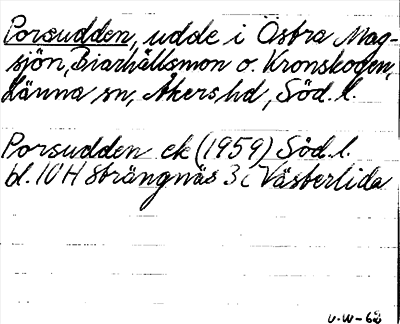 Porsudden, udde i Östra Mag-
sjön, Biarhällsmon o. Kronskogen,
Länna sn, Åkers hd, Söd. l.
Porsudden ek (1959) Söd. l.
bl. 10H Strängnäs 3 c Västerlida
U.W-62